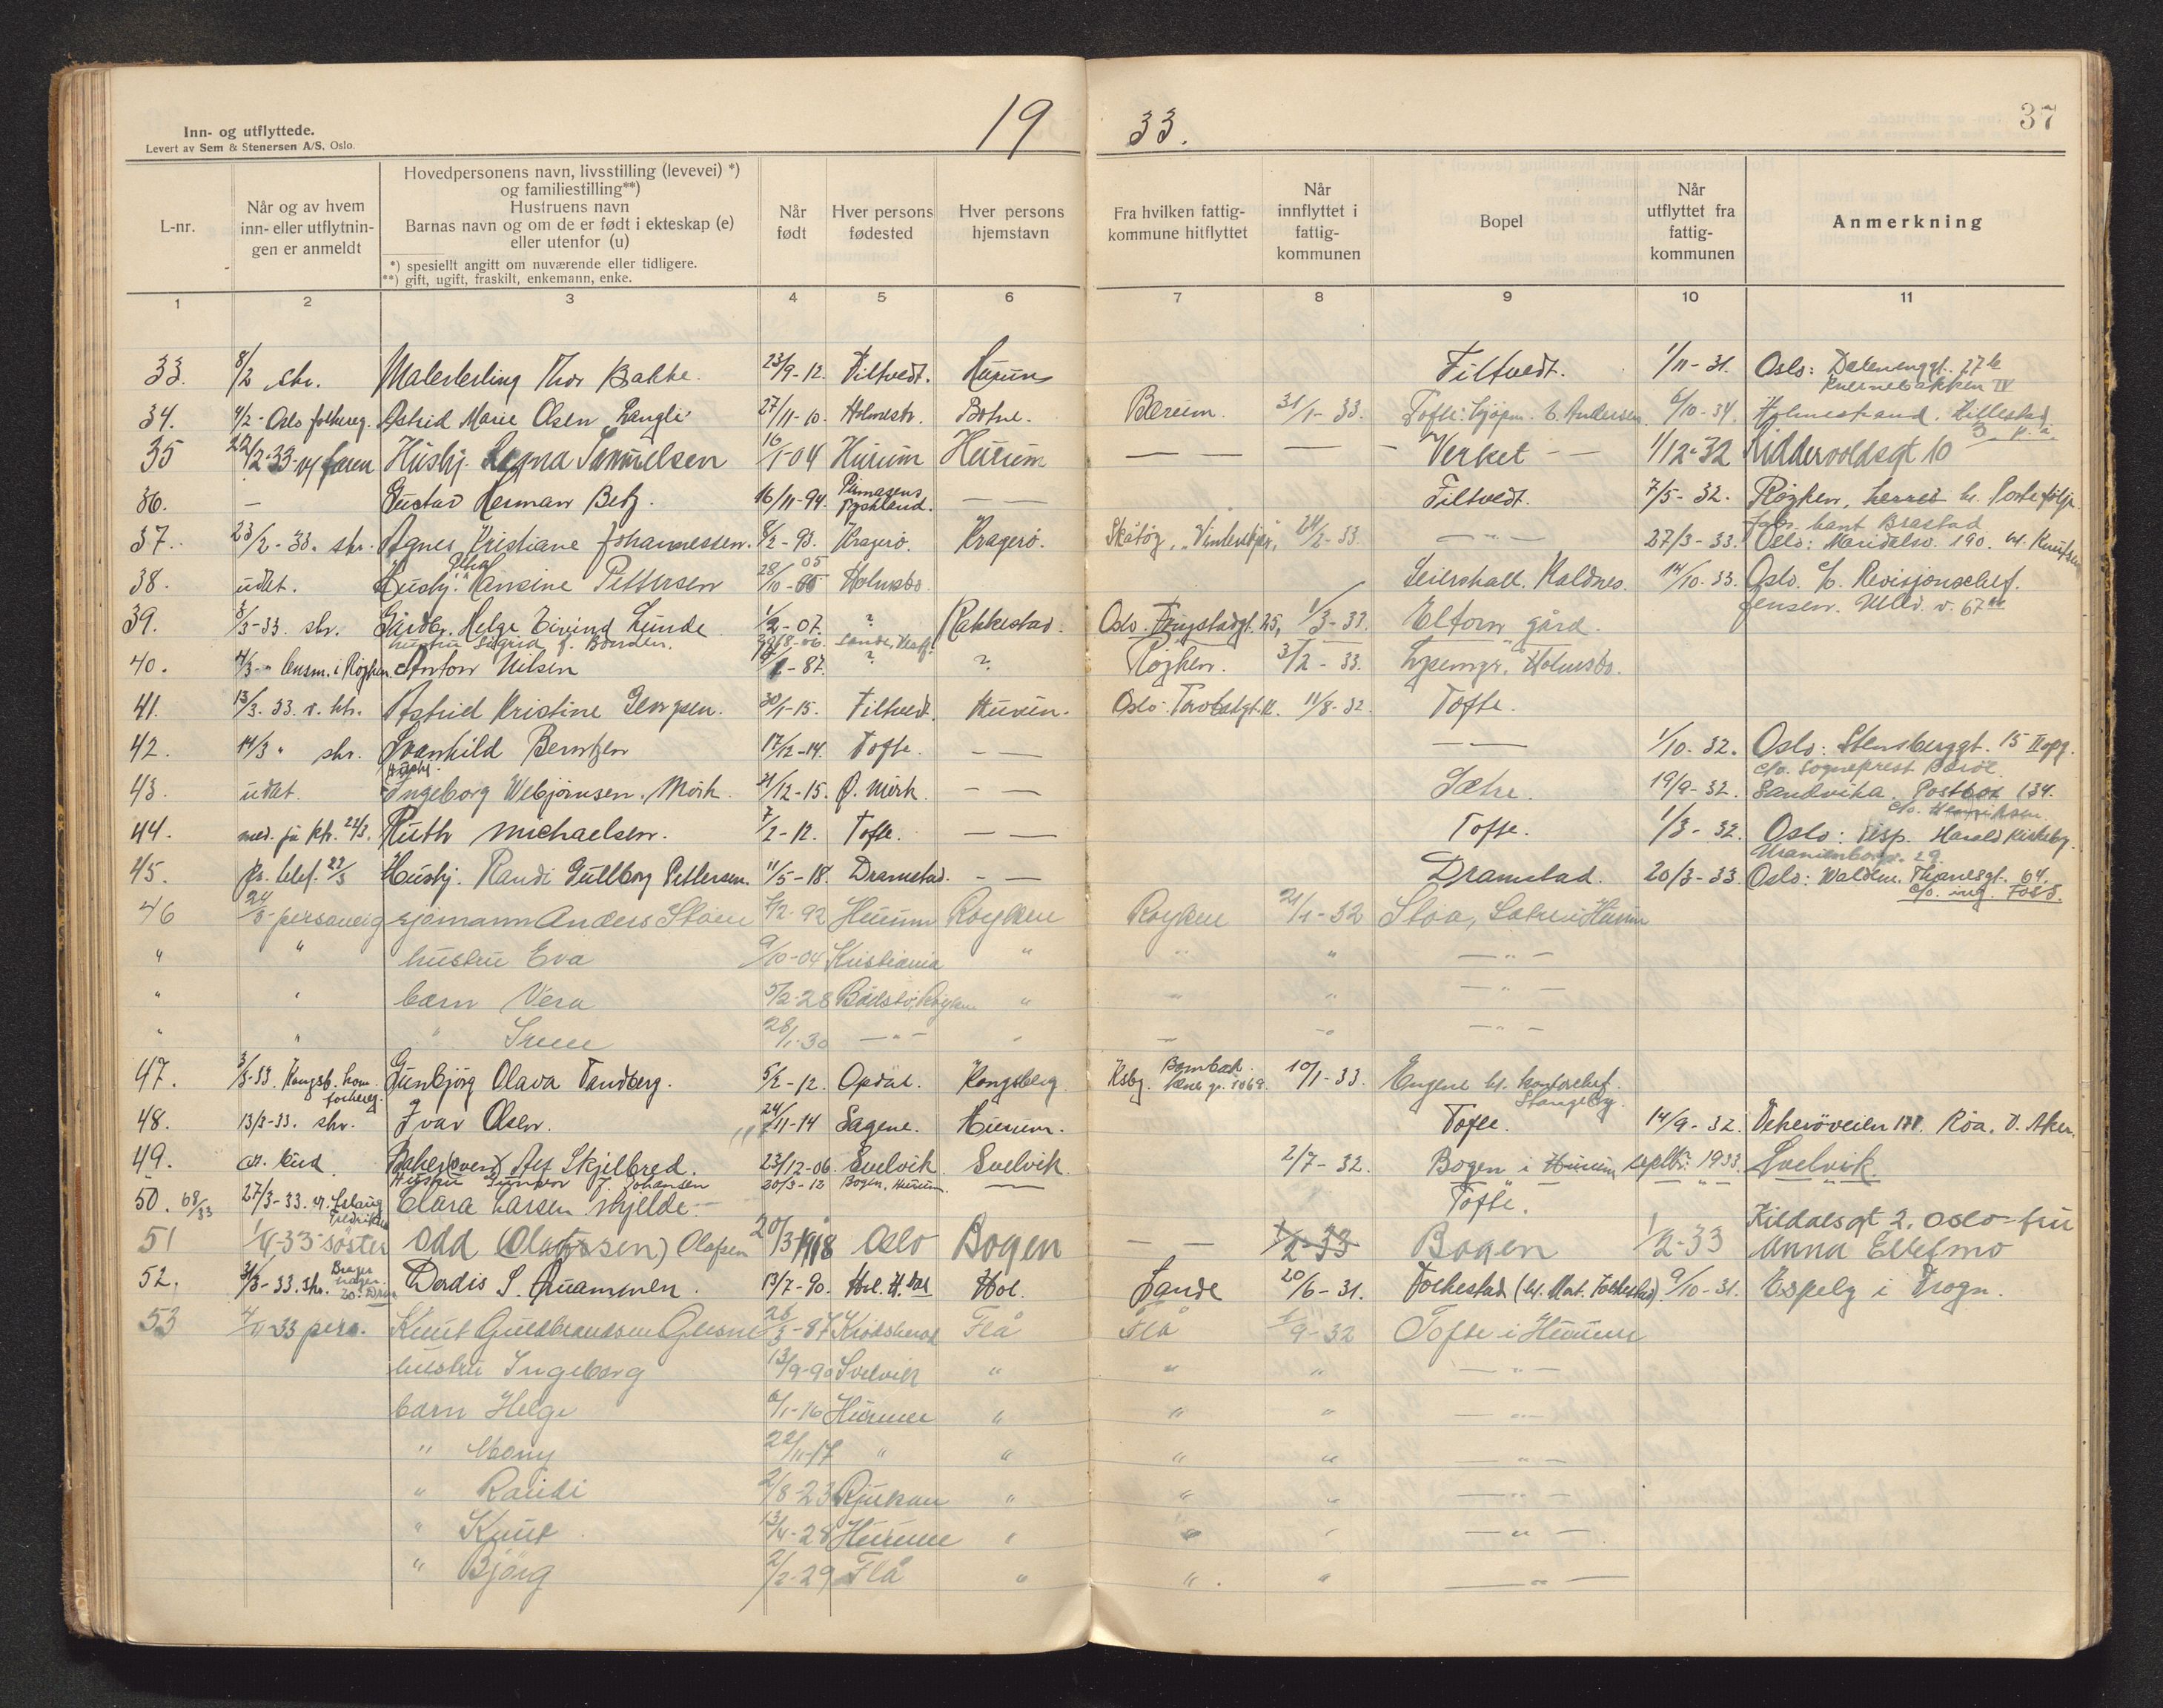 Inn- og utflyttede.
Levert av Sem & Stenersen A/S, Oslo.
19 33.
37
L-nr.
Når og av hvem inn- eller utflytnin-gen er anmeldt
Hovedpersonens navn, livsstilling (levevei) *)
og familiestilling**)
Hustruens navn
Barnas navn og om de er født i ekteskap (e)
eller utenfor (u)
*) spesiellt angitt om nuværende eller tidligere.
**) gift, ugift, fraskilt, enkemann, enke.
Når født
Hver persons fødested
Hver persons hjemstavn
Fra hvilken fattig-kommune hitflyttet
Når innflyttet i fattig-kommunen
Bopel
Når utflyttet fra fattig-kommunen
Anmerkning
1 2 3 4 5 6 7 8 9 10 11
33. 8/2 skr. Malerlerling Thor Bakke. 23/9-12. Filtvedt. Hurum Filtvedt. 1/11-31. Oslo: Dælenenggt. 27 b
Kvernebakken IV
34. 9/2 - Oslo folkereg. Astrid Marie Olsen Langli 27/11-10. Holmestr. Botne. Bærum. 31/1-33. Tofte: kjøpm. C. Andersen 6/10-34. Holmestrand. Hillestad
35 22/2-33 faren Hushj. Samuelsen 16/1-04 Hurum Hurum — — — Verket — 1/12-32 Riddervoldsgt 10
36. — Gustav Herman Betz. 16/11-94. Pirmasens Tyskland. — — Filtvedt. 7/5-32. Røyken,
37. 23/2-33. skr. Agnes Kristiane Johannessen. 8/2-93. Kragerø. Kragerø. Skåtøy, 24/2-33. — " — 27/3-33. Oslo: Maridalsv. 190.
38. udat. Hushj. Hansine Pettersen 28/10-05 Holmsbo. Seierstall. Kaldnes. 14/10-33. Oslo. c/o. Revisjonschef.
Jensen. Ulld. v. 67
39. 3/3-33. skr. Gårdbr. Helge Eivind Lunde 1/2-07. ? Rakkestad. Oslo. 25, 1/3-33. Eltorn gård.
hustru Sigrid f. Bonden.
40. 4/3 - " lensm. i Røyken. Anton Nilsen -87. ? ? Røyken. 3/2-33. Holmsbo.
41. 13/3-33. Astrid Kristine Georgsen. 30/1-15. Filtvedt. Hurum. Oslo. 11/8-32. Tofte.
42. 14/3 " skr. Svanhild Berntzen 17/12-14. Tofte. — — — — 1/10-32. Oslo: Stensberggt. 15 II opg.
c/o. Sogneprest
43. udat. Hushj. Ingeborg Webjørnsen, Mørk. 21/12-15. Ø. Mørk. — — Sætre. 19/9-32. Sandvika. Postbox 134.
c/o. Henriksen.
44. Ruth Michaelsen. 7/2-12. Tofte. — — Tofte. 1/3-32. Oslo: disp. Harald Kirkeby.
Uranienborgv. 29
45. Hushj. Randi Gullborg Pettersen. 11/5-18. Dramstad. - — Dramstad. 20/3-33. Oslo: Waldem. Thranesgt. 64.
c/o. ing. Foss.
46 24/3 - personlig sjømann Anders Støen 5/2-92 Hurum Røyken Røyken 21/1-32 Støa, Sætre i Hurum
" " hustru Eva 9/10-04 Kristiania " " " — " —
" " barn Vera 5/2-28 Båtstø, Røyken " " " — " —
" " " Irene 28/1-30 — " — " — " — " —
47. 3/3-33. Kongsb. kom. folkereg. Gunbjørg Olava Tandberg. 5/2-12. Opdal. Kongsberg. Ksbg. 10/1-33. Engene kontorchef. Stangeby.
48. 13/3-33. skr. Ivar Olsen. 24/11-14 Sagene. Hurum. Tofte. 14/9-32. Vekerøveien 178. Røa. V. Aker.
49. Baker(svend) Arf Skjelbred. 23/12-06. Svelvik Svelvik. 2/7-32. Bogen i Hurum septbr. 1933. Svelvik.
Hustru Gunvor f. Johansen 20/3-12 Bogen, Hurum. —
50. 68/33 27/3-33. Fredriksen Clara Larsen Mjelde. — Tofte.
51 1/4-33 søster Odd (Olafssen) Olafsen 20/3 1918 Oslo Bogen — — 1/2-33 Bogen 1/2-33 Kildalsgt 2. Oslo - fru
Anna Ellefmo
52. 31/3-33. skr. Dordis S. Quammen. 13/7-90. Hol. H.dal Hol. Sande 20/6-31. Folkestad 9/10-31. Espely i Trogn.
53 4/4-33 pers. Knut Guldbrandsen Glesne 26/3-87 Krødsherad Flå Flå 1/9-32 Tofte i Hurum
hustru Ingeborg 13/9-90 Svelvik " " " — " —
barn Helge 6/1-16 Hurum " " " — " —
" Mony 22/11-17 " " " " — " —
" Randi 2/8-23 Rjukan " " " — " —
" Knut 13/4-28 Hurum " " " — " —
" Bjørg 2/2-29 Flå " " " — " —